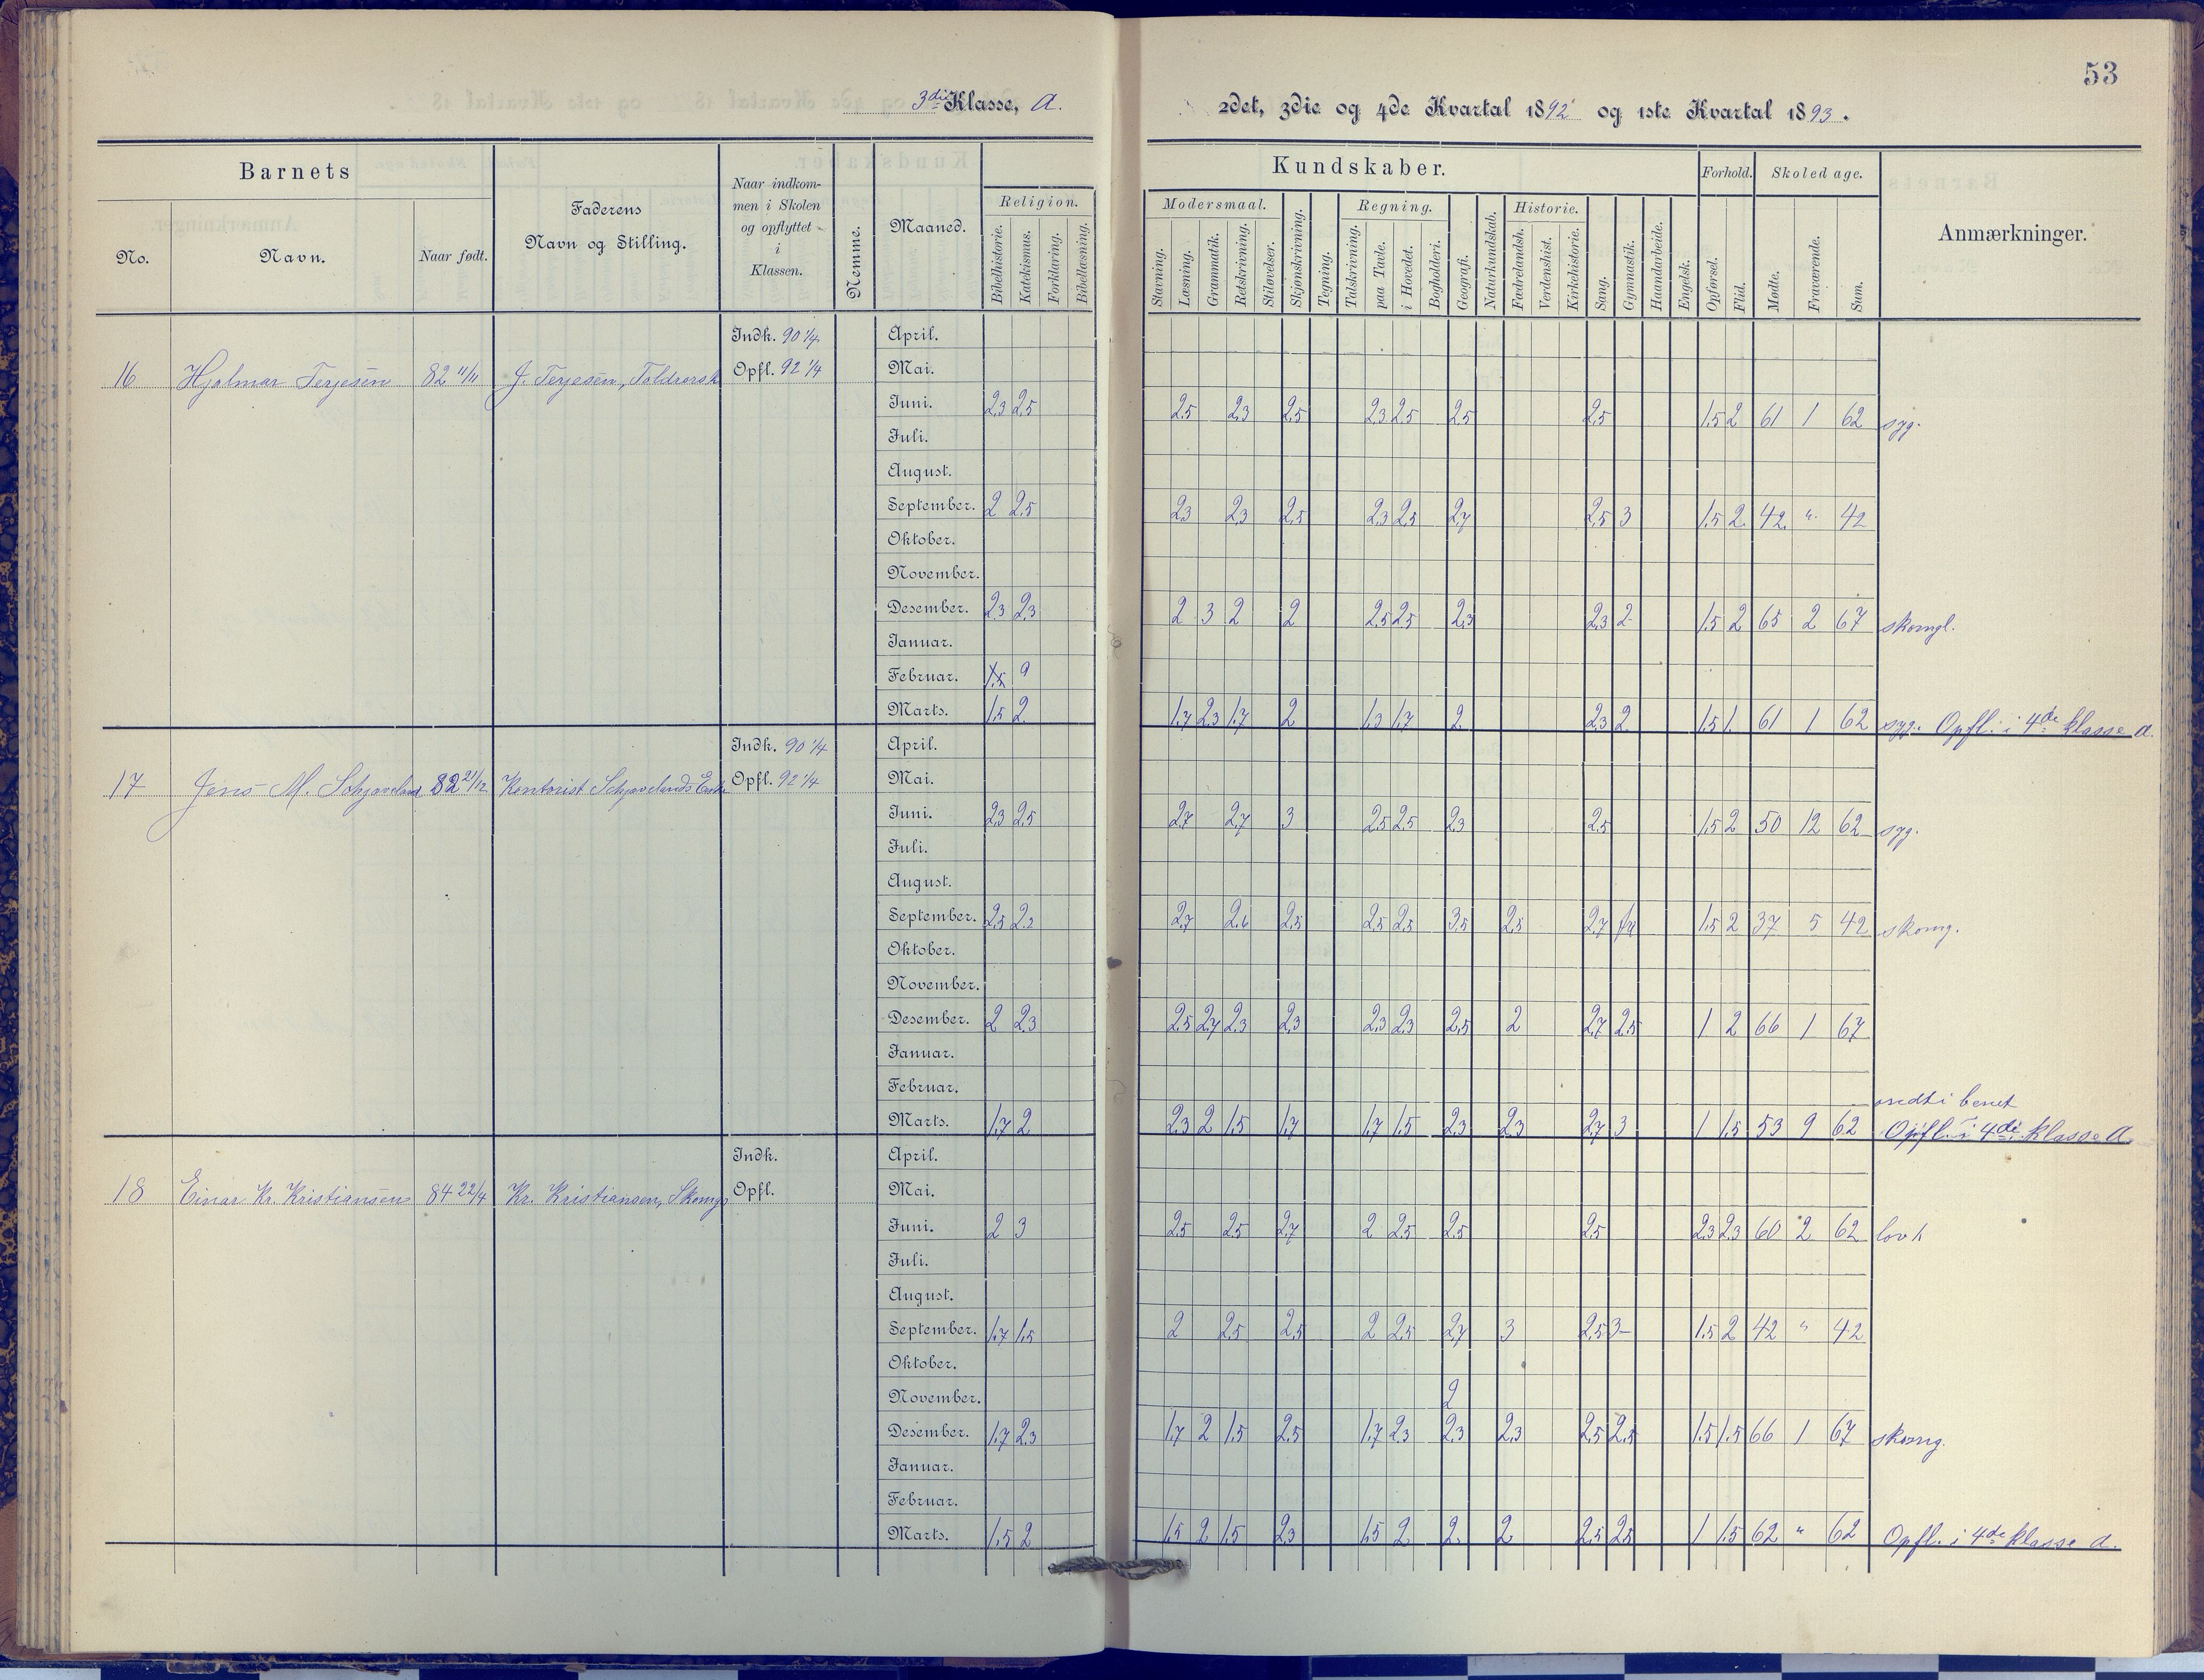 53
3die Klasse, A.
2det, 3die og 4de Kvartal 1892 og 1ste Kvartal 1893.
Barnets
No.
Navn.
Naar født.
Faderens
Navn og Stilling.
Naar indkom-
men i Skolen
og opflyttet
i
Klassen.
Nemme.
Maaned.
Kundskaber.
Religion.
Bibelhistorie.
Katekismus.
Forklaring.
Bibellæsning.
Modersmaal.
Stavning.
Læsning.
Grammatik.
Retskrivning.
Stiløvelser.
Skjønskrivning.
Tegning.
Regning.
Talskrivning.
paa Tavle.
i Hovedet.
Bogholderi.
Geografi.
Naturkundskab.
Historie.
Fædrelandsh.
Verdenshist.
Kirkehistorie.
Sang.
Gymnastik.
Haandarbeide.
Engelsk.
Forhold.
Opførsel.
Flid.
Skoledage.
Mødte.
Fraværende.
Sum.
Anmærkninger.
Indk. 90 1/4 April.
16 Hjalmar Terjesen 82 11/11 J. Terjesen, Opfl. 92 1/4 Mai.
Juni. 2.3 2.5 2.5 2.3 2.5 2.3 2.5 2.5 2.5 1.5 2 61 1 62 syg.
Juli.
August.
September. 2 2.5 2.3 2.3 2.5 2.3 2.5 2.7 2.5 3 1.5 2 42 " 42
Oktober.
November.
Desember. 2.3 2.3 2 3 2 2 2.5 2.5 2.3 2.3 2 1.5 2 65 2 67 skomgl.
Januar.
Februar.
Marts. 1.5 2 1.7 2.3 1.7 2 1.3 1.7 2 2.3 2 1.5 1 61 1 62 syg. Opfl. i 4de klasse a.
Indk. 90 1/4 April.
17 Jens M. Schjaveland 82 21/12 Kontorist Schjavelands Enke Opfl. 92 1/4 Mai.
Juni. 2.3 2.5 2.7 2.7 3 2.5 2.5 2.3 2.5 1.5 2 50 12 62 syg.
Juli.
August.
September. 2.5 2.2 2.7 2.6 2.5 2.5 2.5 3.5 2.5 2.7 1.5 2 37 5 42 skomg.
Oktober.
November.
Desember. 2 2.3 2.5 2.7 2.3 2.3 2.3 2.3 2.5 2 2.7 2.5 1 2 66 1 67
Januar.
Februar.
ondt i benet
Marts. 1.7 2 2.3 2 1.5 1.7 1.7 1.5 2.3 2.3 2.7 3 1 1.5 53 9 62 Opfl. i 4de klasse A.
Indk. April.
18 Einar Kr. Kristiansen 84 22/4 Kr. Kristiansen, Skomg. Opfl. Mai.
Juni. 2 3 2.5 2.5 2.7 2 2.5 2.5 2.5 2.3 2.3 60 2 62 lov
Juli.
August.
September. 1.7 1.5 2 2.5 2.5 2 2.5 2.7 3 2.5 3- 1.5 2 42 " 42
Oktober.
November. 2
Desember. 1.7 2.3 1.7 2 1.5 2.5 1.7 2.3 2.3 2.3 2.5 2.5 1.5 1.5 66 1 67 skomg.
Januar.
Februar.
Marts. 1.5 2 1.5 2 1.5 2.3 1.5 2 2 2 2.5 2.5 1 1.5 62 " 62 Opfl. i 4de klasse a.